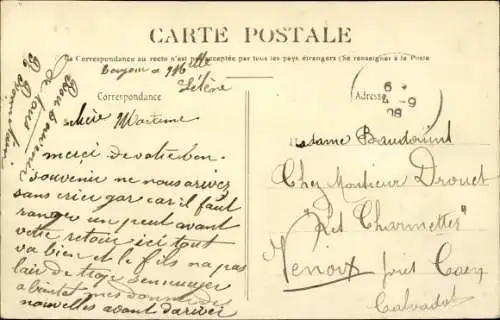 CARTE POSTALE
La Correspondance au recto n'est pas acceptée par tous les pays étrangers (Se renseigner à la Poste
Bonjour a Mlle
Hélène
Correspondance
Adresse
Bon souvenir
de Nous
Chère Marraine
merci de votre bon
souvenir ne nous arrivez
sans crier gar car il faut
ranger un peut avant
votre retour ici tout
va bien et le fils n'a pas
lair de trop sennuyer
a bientôt mes
nouvelles avant d'arriver
Madame Baudouint
Chez Monsieur Drouet
"Les Charmettes"
Venoix près Caen
Calvados